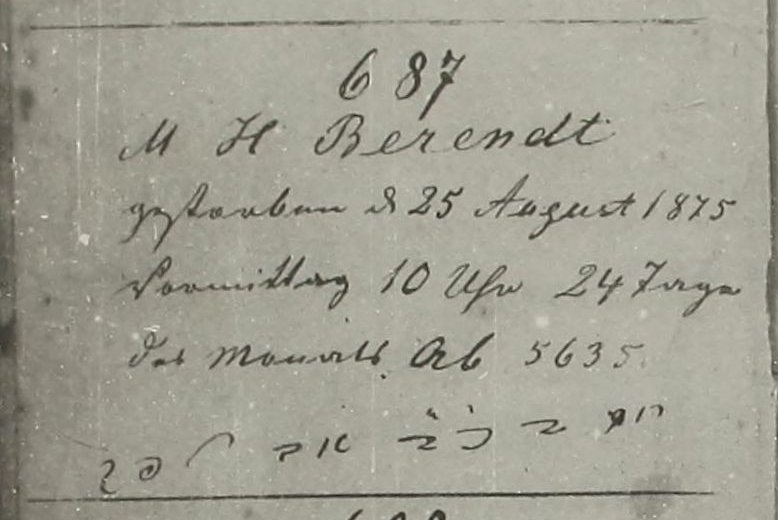 687
M H Berendt
gestorben d 25 August 1875
Vormittag 10 Uhr 24 Tage
des Monats Ab 5635